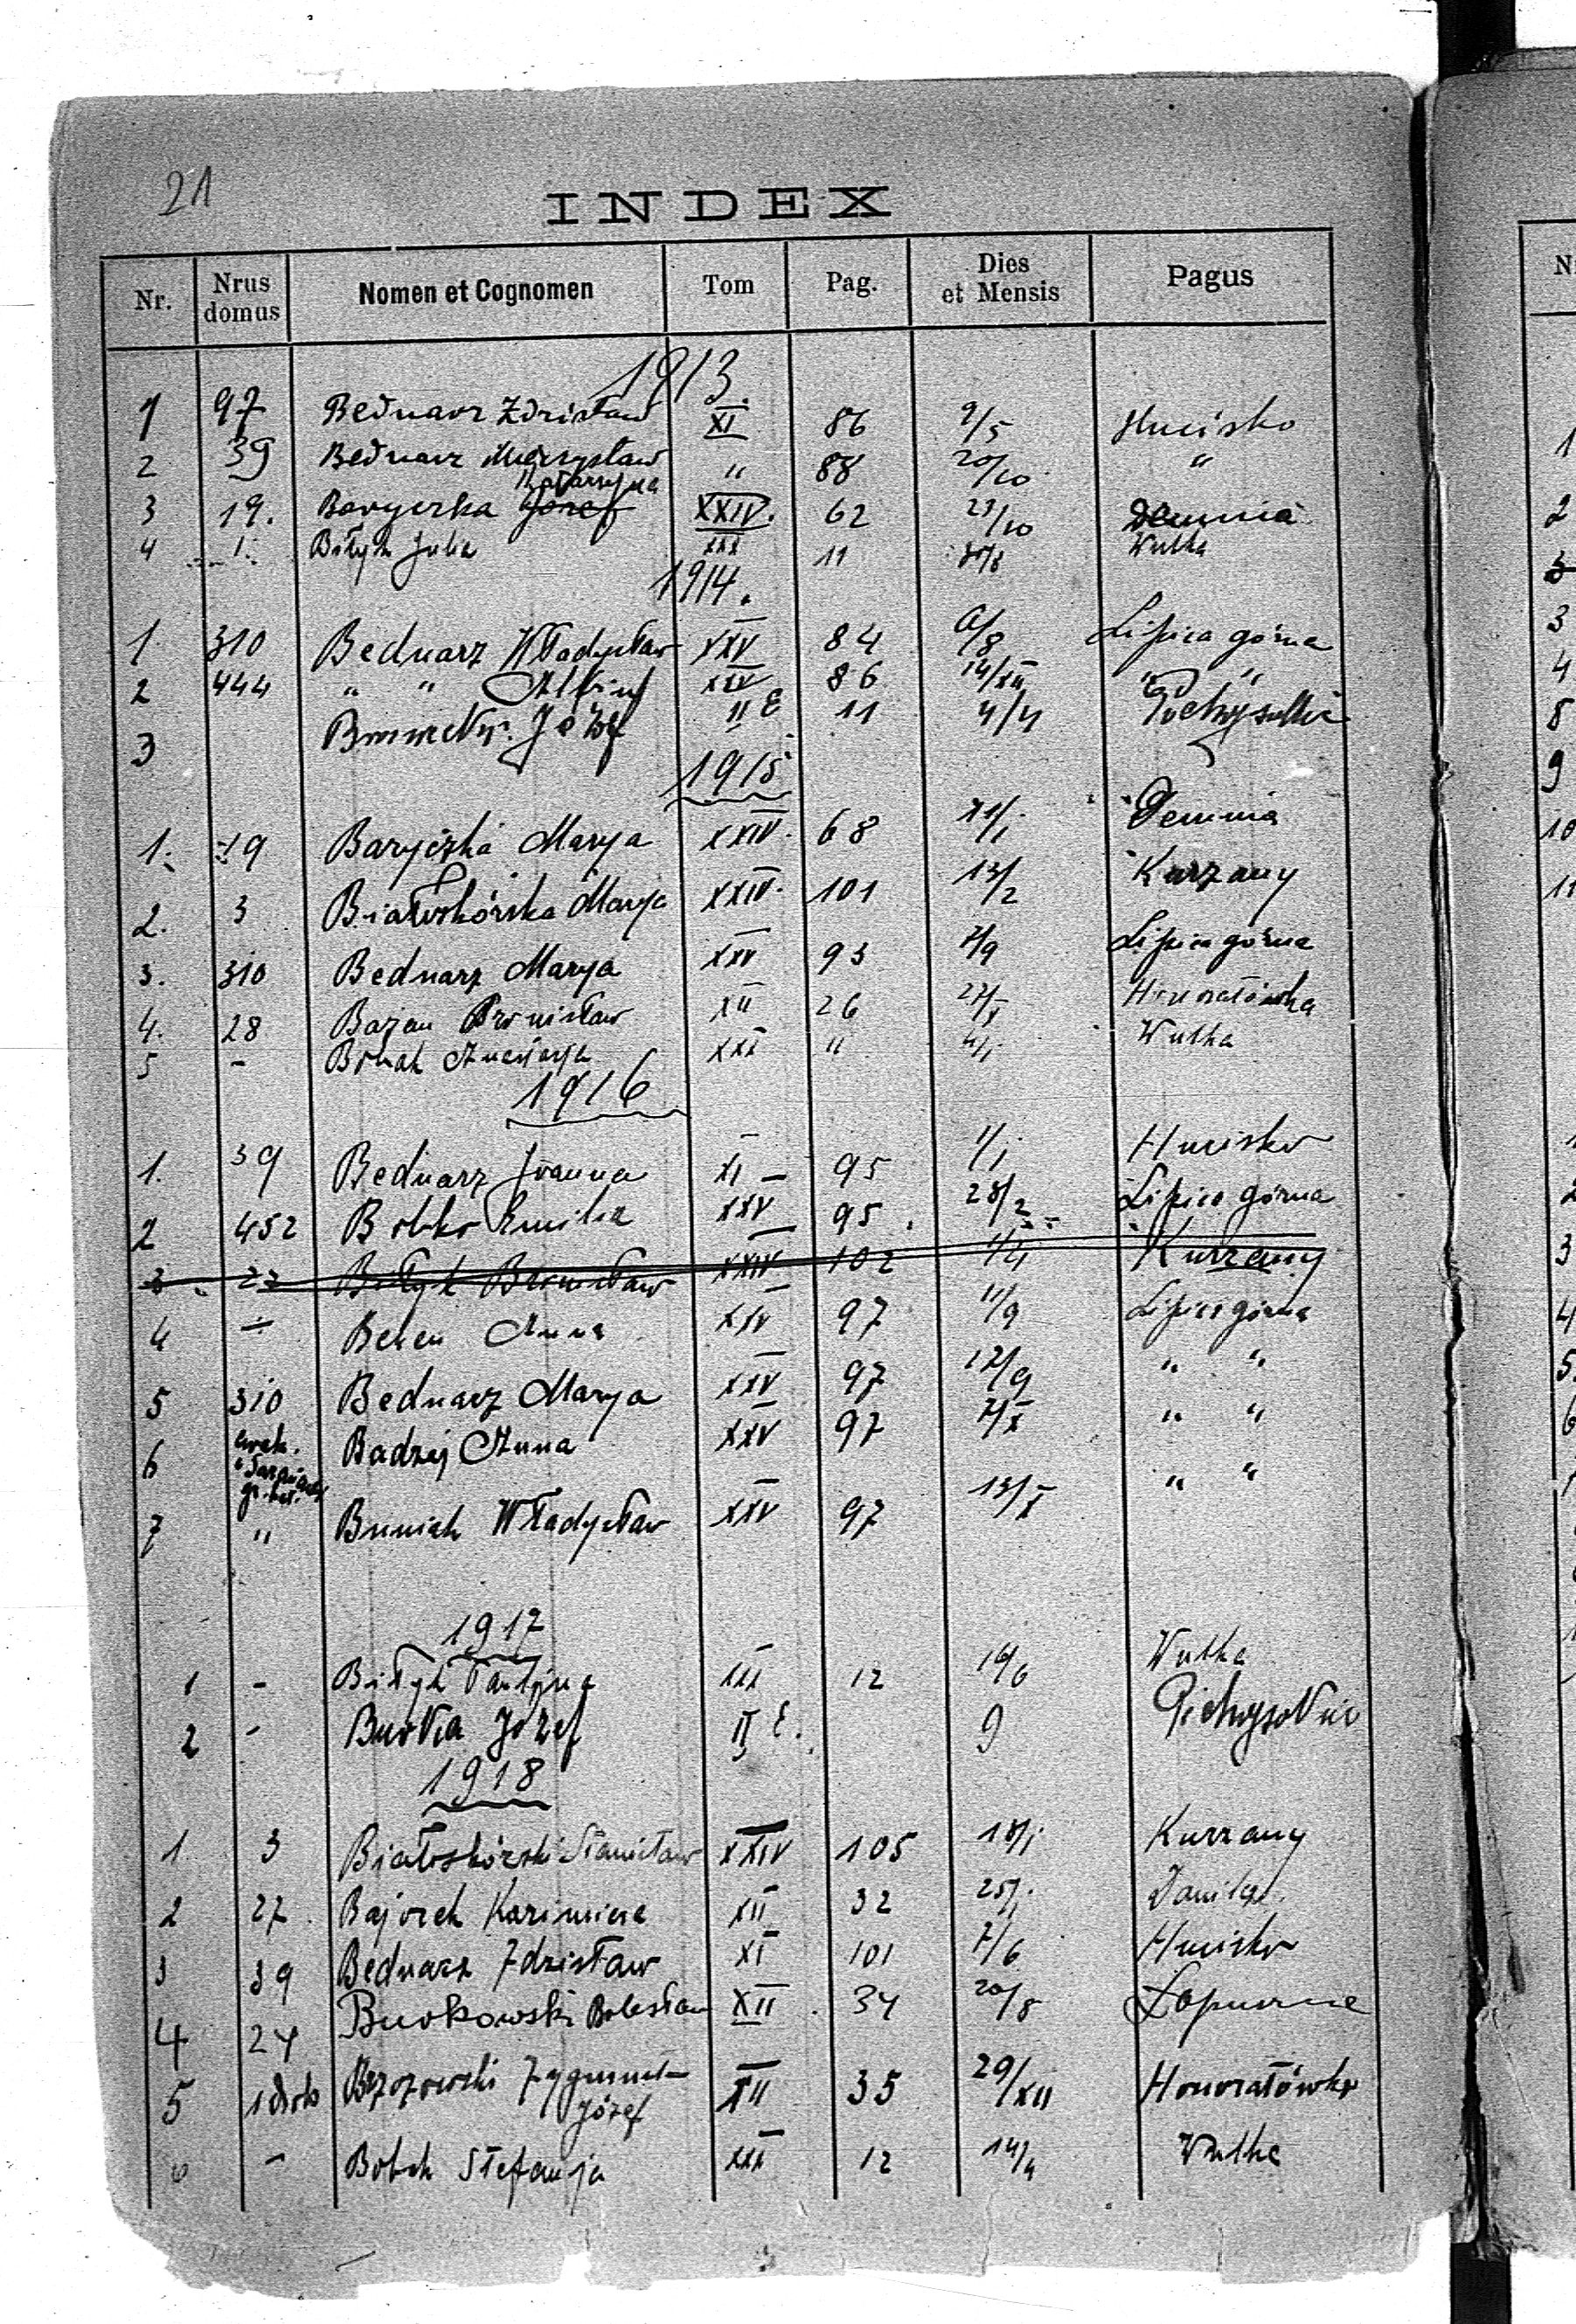 21
INDEX
Nr. Nrus domus Nomen et Cognomen Tom Pag. Dies et Mensis Pagus
1913.
1 97 Bednarz Zdzisław XI 86 9/5 Hucisko
2 39 Bednarz Mieczysław " 88 20/10 "
Katarzyna
3 19. Baryczka Józef XXIV. 62 23/10 Demnia
4 1. Biłyk Julia XXX 11 Wulka
1914.
1. 310 Bednarz Władysław XXV 84 6/8 Lipica górna
2 444 " " Albin XXV 86 14/XII " "
3 Józef II E 11 4/4
1915
1. 19 Baryczka Marya XXIV. 68 Demnia
2. 3 Białoskórska Marya XXIV. 101 13/2 Kurzany
3. 310 Bednarz Marya XXV 93 7/9 Lipica górna
4. 28 Bajan Bronisław XII 26 27/X Honoratówka
5 - XXX " Wulka
1916
1. 39 Bednarz Joanna XI 95 1/I Hucisko
2 452 Bobko Emilia XXV 95. 28/2 Lipica górna
3. 27 Biłyk Bronisław XXIV 102 Kurzany
4 - Behen Anna XXV 97 11/9 Lipica górna
5 310 Bednarz Marya XXV 97 12/9 " "
6 Badzej Anna XXV 97 7/X " "
7 " Buniak Władysław XXV 97 13/X " "
1917
1 - Biłyk XXX 12 16/6 Wulka
2 - Burka Józef II E. 9
1918
1 3 Białoskórski Stanisław XXIV 105 18/I Kurzany
2 27. Bajorek Kazimiera XII 32 25/I
3 39 Bednarz Zdzisław XI 101 7/6 Hucisko
4 24 Burkowski Bolesław XII. 34 20/8 Łopuszna
5 Brzozowski Zygmunt XII 35 29/XII Honoratówka
Józef
6 - Bobek Stefanja XXX 12 14/4 Wulka